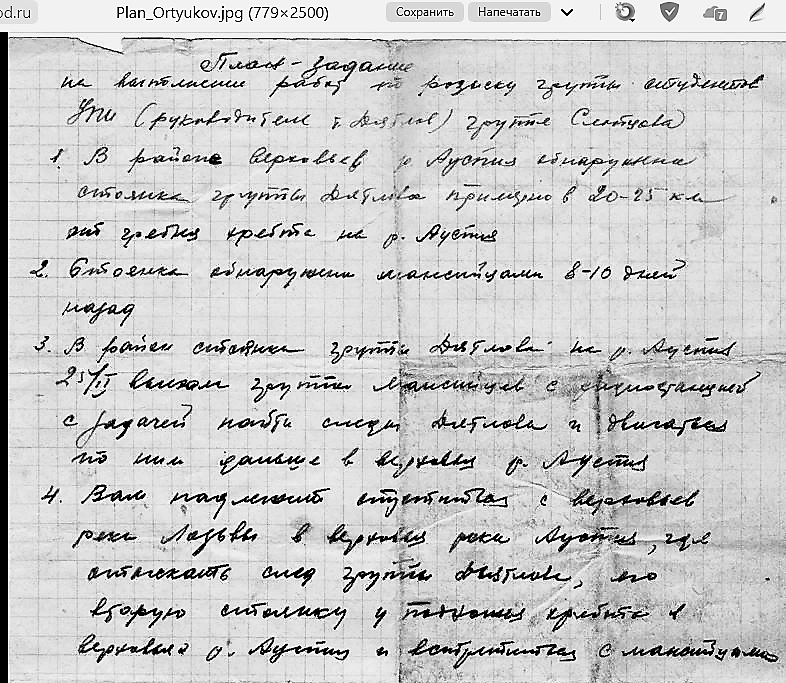 od.ru
Plan_Ortyukov.jpg (779×2500)
Сохранить
Напечатать
7
План-задание
на выполнение работ по розыску группы студентов
УПИ (руководитель т. Дятлов) группе Слобцова
1. В районе верховьев р. Ауспия обнаружена
стоянка группы Дятлова примерно в 20-25 км
от гребня хребта на р. Ауспия
2. Стоянка обнаружена мансийцами 8-10 дней
назад
3. В район стоянки группы Дятлова на р. Ауспия
25/II выехали группа мансийцев с радиостанцией
с задачей найти следы Дятлова и двигаться
по ним дальше в верховья р. Ауспия
4. Вам надлежит спуститься с верховьев
реки Лозьвы в верховья реки Ауспия, где
отыскать след группы Дятлова, его
вторую стоянку у подножия хребта в
верховьях р. Ауспия и встретиться с мансийцами